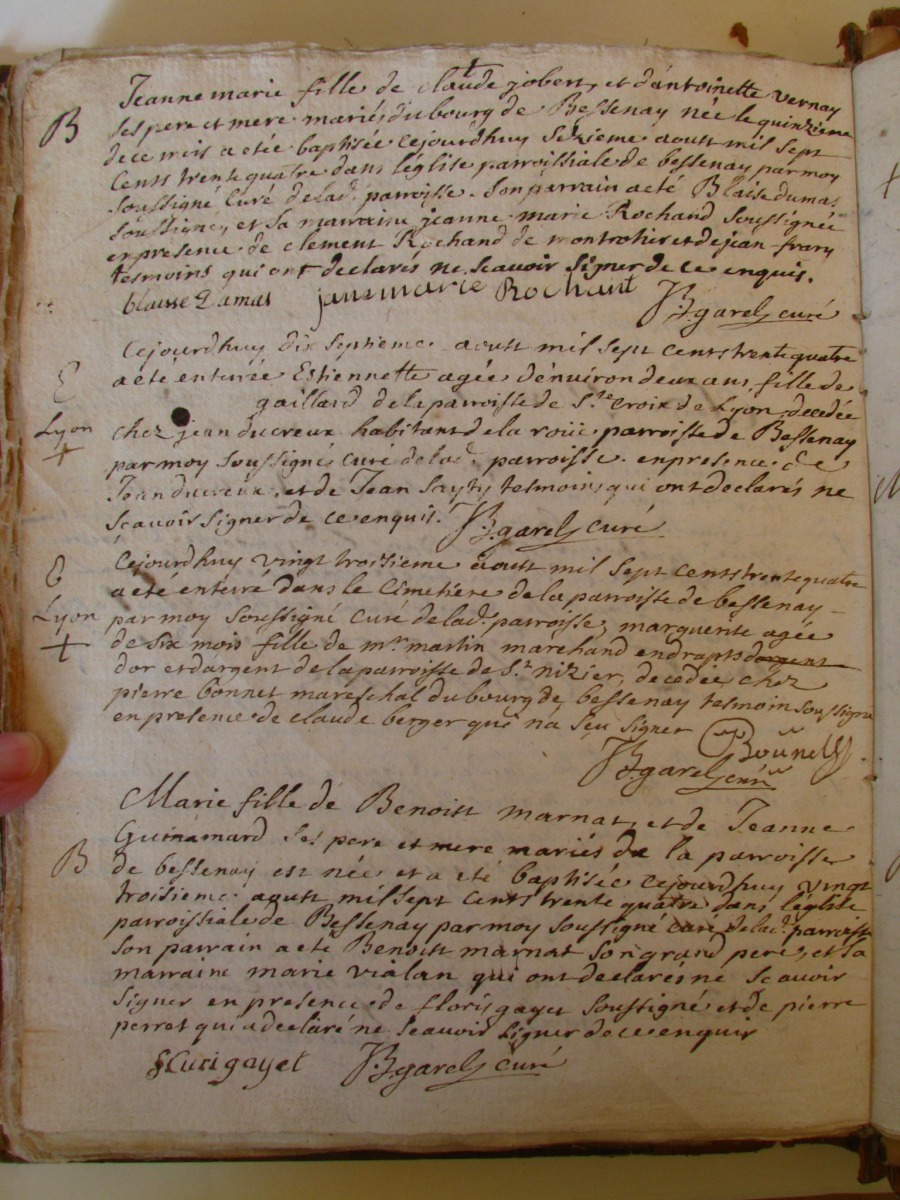 Jeanne marie fille de claude jobert, et dántoinette vernay
B
ses pere et mere mariés du bourg de Bessenay née le quinzieme
de ce mois a etée baptisée cejourdhuy seizieme aoust mil sept
cents trente quatre dans léglise parroissiale de bessenay par moy
soussigné curé de lad. parroisse. Son parrain a eté Blaise dumas
soussigné, et sa marraine jeanne marie Rochand soussignée
en presence de clement Rochand de montrotier et de jean
tesmoins qui ont declarés ne scauoir signer de ce enquis.
blaisse damas janemarie Rochant
JB garel curé
Cejourdhuy dix septieme aoust mil sept cents trente quatre
E
a eté enterrée Estiennette agée dénuiron deux ans, fille de
gaillard de la parroisse de Ste croix de Lyon, decedée
Lyon
+
chez jean ducreux habitant de la roüe parroisse de Bessenay
par moy soussigné curé de lad. parroisse. en presence de
Jean ducreux, et de Jean tesmoins qui ont declarés ne
scauoir signer de ce enquis. JB garel curé
Cejourdhuy vingt troisieme aoust mil sept cents trente quatre
E
a eté enterré dans le cimetiere de la parroisse de bessenay –
Lyon
+
par moy soussigné curé de lad. parroisse, marguerite agée
de six mois fille de mr martin marchand en draps dargent
dor et dargent de la parroisse de St nizier, decedée chez
pierre bonnet mareschal du bourg de bessenay tesmoin soussigné
en presence de claude berger qui na sçu signer
Bounet
JB garel curé
Marie fille de Benoist marnat, et de Jeanne
Guinamard ses pere et mere mariés de la parroisse
B
de bessenay est née et a eté baptisée cejourdhuy vingt
troisieme aoust mil sept cents trente quatre dans léglise
parroissiale de Bessenay par moy soussigné curé de lad. parroisse
son parrain a eté Benoist marnat son grand pere, et sa
marraine marie vialan qui ont declarés ne scauoir
signer en presence de floris gayet soussigné, et de pierre
perret qui a declaré ne scauoir signer de ce enquis
flurigayet JB garel curé